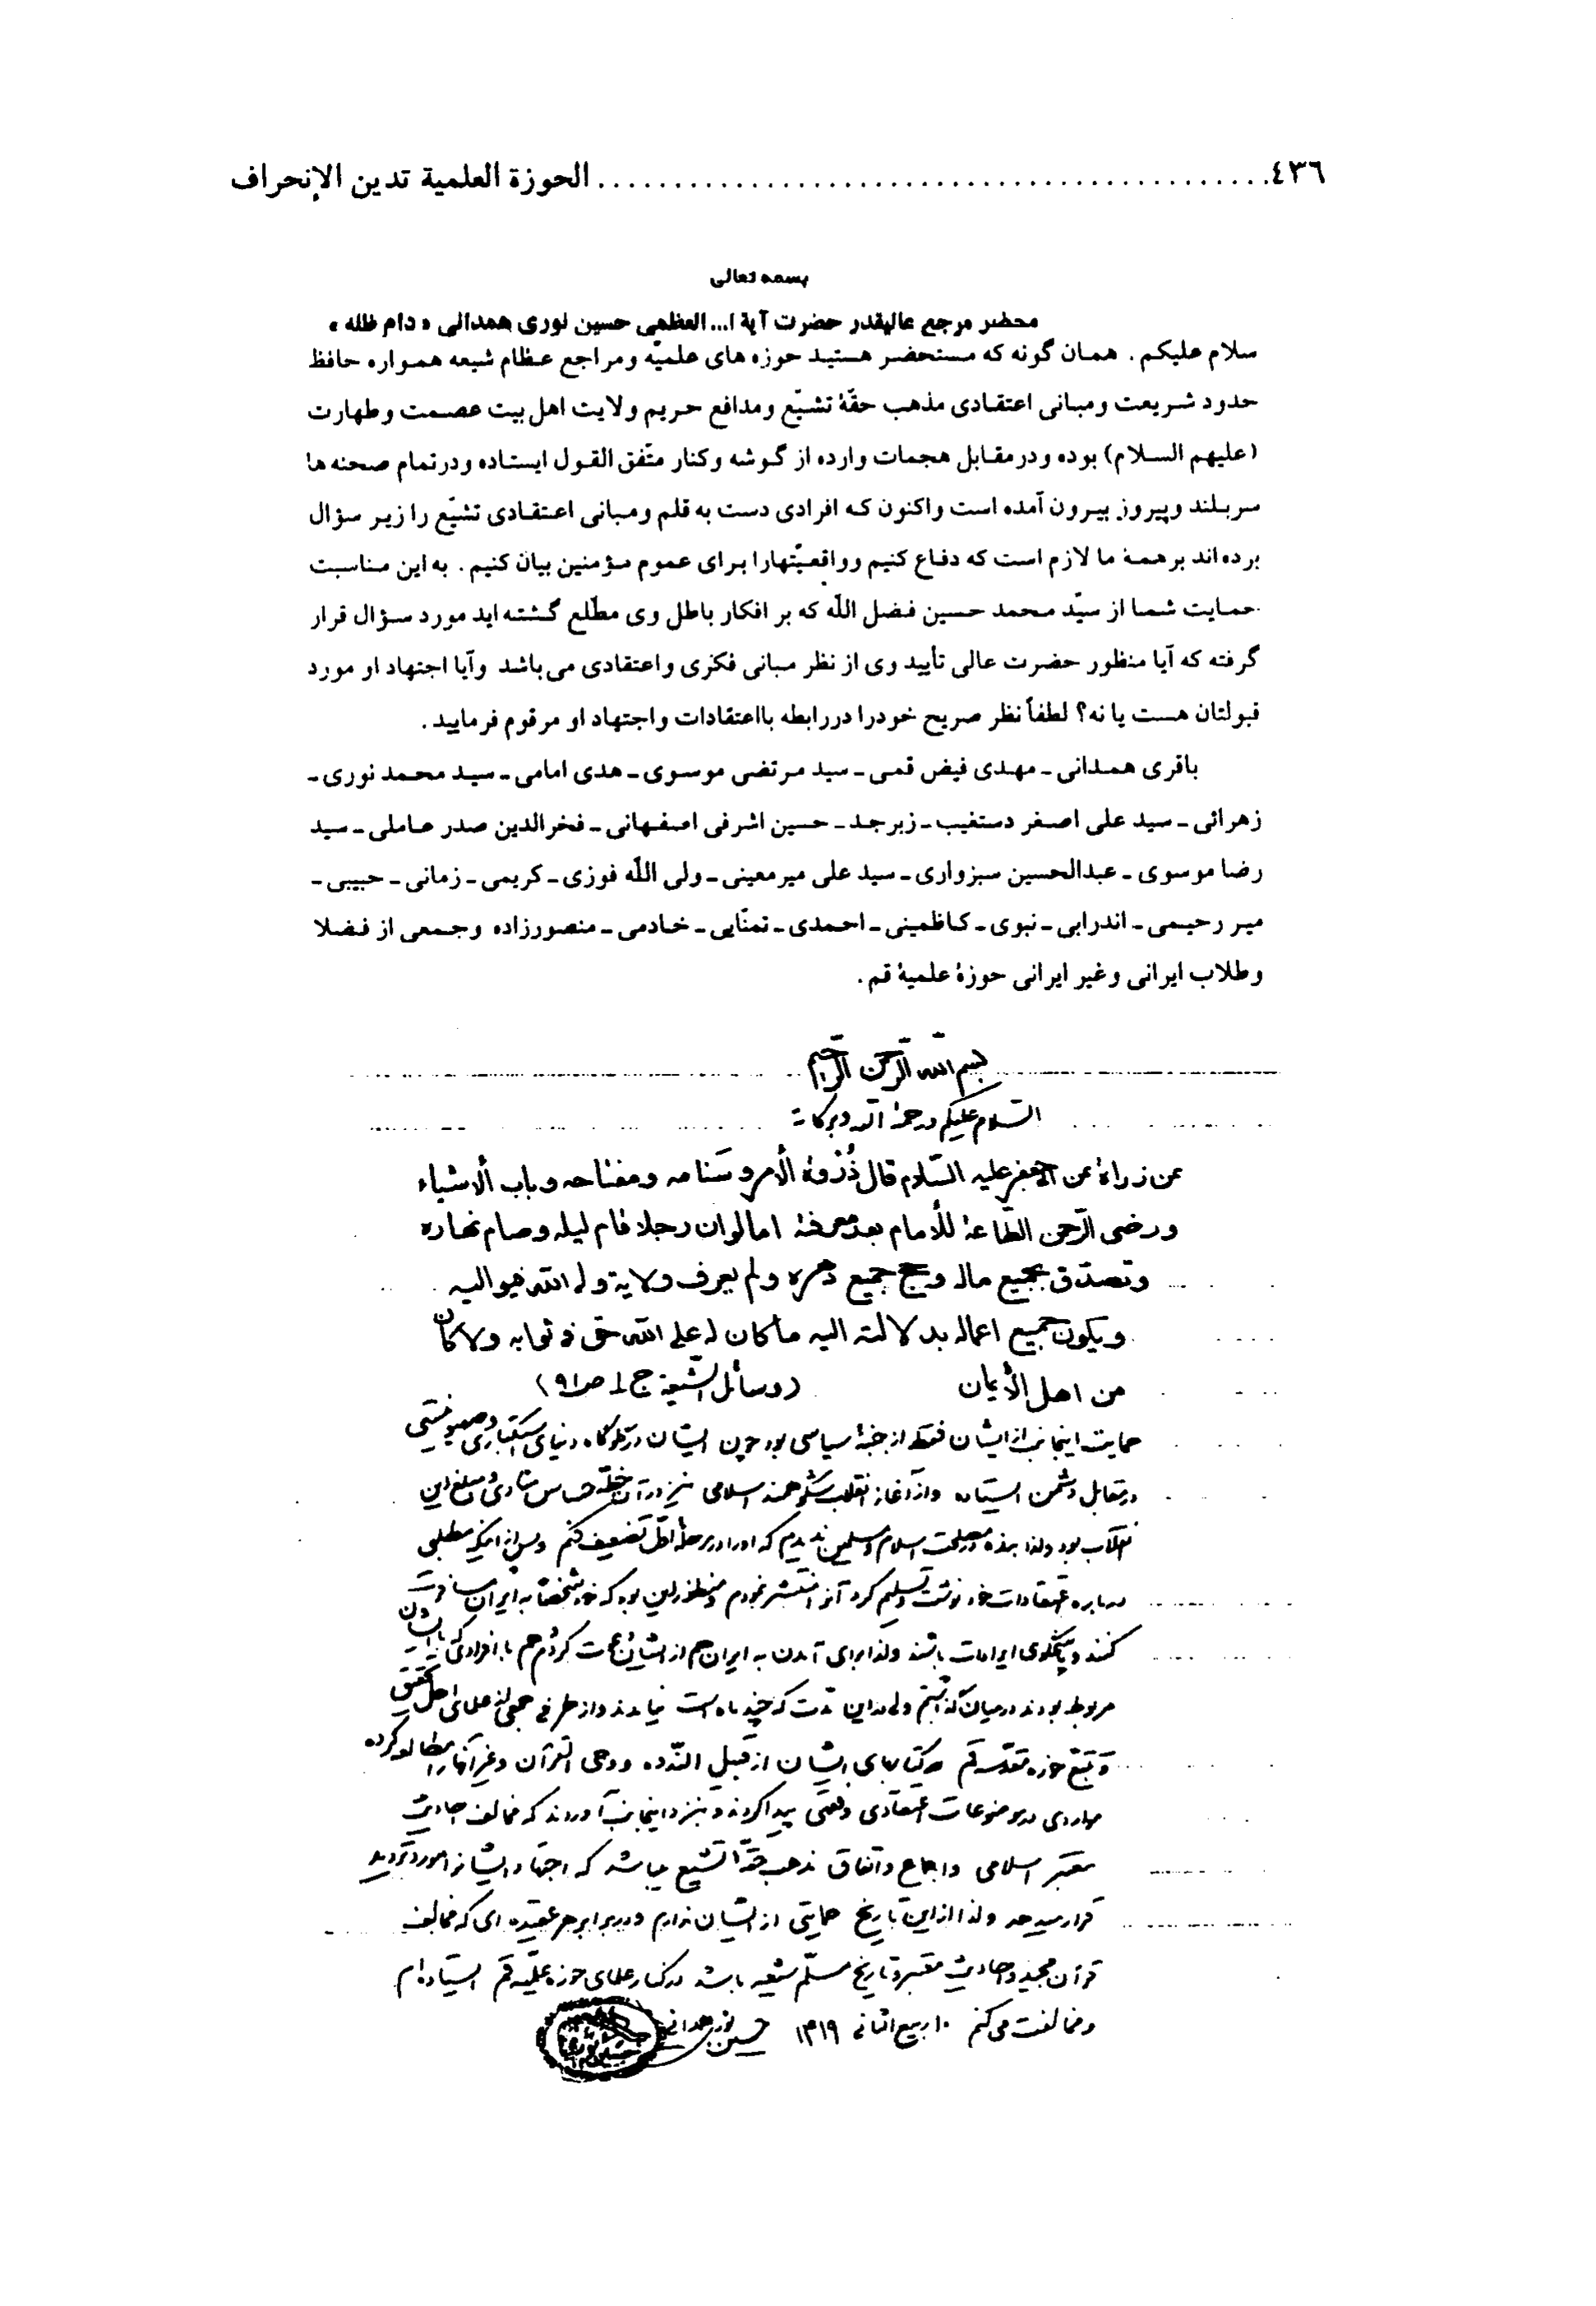 ٤٣٦ ........ الحوزة العلمية تدين الإنحراف
بسمه تعالی
محضر مرجع عالیقدر حضرت آیة ا... العظمی حسین نوری همدانی « دام ظله »
سلام علیکم . همان گونه که مستحضر هستید حوزه های علمیّه ومراجع عظام شیعه همواره حافظ
حدود شریعت ومبانی اعتقادی مذهب حقّهٔ تشیّع ومدافع حریم ولایت اهل بیت عصمت وطهارت
(علیهم السلام) بوده ودرمقابل هجمات وارده از گوشه وکنار متّفق القول ایستاده ودرتمام صحنه ها
سربلند وپیروز بیرون آمده است واکنون که افرادی دست به قلم ومبانی اعتقادی تشیّع را زیر سؤال
برده اند برهمهٔ ما لازم است که دفاع کنیم وواقعیّتهارا برای عموم مؤمنین بیان کنیم . به این مناسبت
حمایت شما از سیّد محمد حسین فضل اللّه که بر افکار باطل وی مطّلع گشته اید مورد سؤال قرار
گرفته که آیا منظور حضرت عالی تأیید وی از نظر مبانی فکری واعتقادی می باشد وآیا اجتهاد او مورد
قبولتان هست یا نه؟ لطفاً نظر صریح خودرا دررابطه بااعتقادات واجتهاد او مرقوم فرمایید .
باقری همدانی ـ مهدی فیض قمی ـ سید مرتضی موسوی ـ هدی امامی ـ سید محمد نوری ـ
زهرائی ـ سید علی اصغر دستغیب ـ زبرجد ـ حسین اشرفی اصفهانی ـ فخرالدین صدر عاملی ـ سید
رضا موسوی ـ عبدالحسین سبزواری ـ سید علی میرمعینی ـ ولی اللّه فوزی ـ کریمی ـ زمانی ـ حبیبی ـ
میر رحیمی ـ اندرابی ـ نبوی ـ کاظمینی ـ احمدی ـ تمنّایی ـ خادمی ـ منصورزاده وجمعی از فضلا
وطلاب ایرانی وغیر ایرانی حوزهٔ علمیهٔ قم .
بسم الله الرّحمن الرّحیم
السّلام علیکم ورحمة الله وبرکاته
عن زرارة عن ابی جعفر علیه السّلام قال ذُرْوة الأمر وسَنامه ومفتاحه وباب الأشیاء
ورضی الرّحمن الطّاعة للأمام بعد معرفته اما لو ان رجلا قام لیله وصام نهاره
وتصدّق بجمیع ماله وحج جمیع دهره ولم یعرف ولایة ولی الله فیوالیه
ویکون جمیع اعماله بدلالته الیه ما کان له علی الله حق فی ثوابه ولا کان
من اهل الأیمان (وسائل الشّیعة ج ١ ص ٩١)
حمایت اینجانب از ایشان فقط از جنبهٔ سیاسی بود چون ایشان در گلوگاه دنیای استکباری و صهیونیستی
در مقابل دشمن ایستاده واز آغاز انقلاب شکوهمند اسلامی نیز در آن خطّه حساس منادی و مبلغ این
انقلاب بود ولذا بنده در مصلحت اسلام و مسلمین ندیدم که او را در مرحلهٔ اوّل تضعیف کنم و پس از اینکه مطلبی
درباره اعتقادات خود نوشت و تسلیم کرد آنرا منتشر نمودم و منظور این بود که خود شخصاً به ایران مسافرت
کنند و پاسخگوی ایرادات باشند ولذا برای آمدن به ایران هم از ایشان دعوت کردم هم با افرادی که با ایشان
مربوط بودند در میان گذاشتم ولی در این مدّت که چند ماه است نیامدند واز طرفی جمعی از علمای اهل تحقیق
و تتبّع حوزه مقدّسه قم که کتابهای ایشان از قبیل النّدوه و وحی القرآن و غیر آنها را مطالعه کرده
مواردی در موضوعات اعتقادی و فقهی پیدا کردند و بنزد اینجانب آوردند که مخالف احادیث
معتبر اسلامی واجماع واتفاق مذهب حقّهٔ تشیّع میباشد که اجتهاد ایشانرا مورد تردید
قرار میدهد ولذا از این تاریخ حمایتی از ایشان ندارم و در برابر هر عقیده ای که مخالف
قرآن مجید و احادیث معتبر و تاریخ مسلّم شیعه باشد در کنار علمای حوزه علمیّه قم ایستاده ام
و مخالفت می کنم ١٠ ربیع الثانی ١٤١٩ حسین نوری همدانی